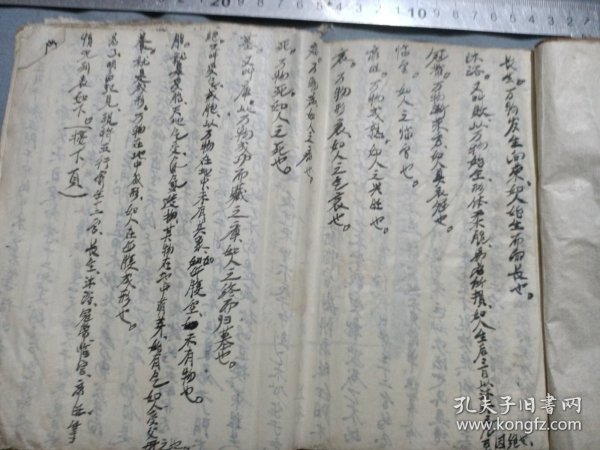 长生。万物发生向荣,如人始生而向长也。
沐浴。又叫败,以万物始生形体柔脆,易为所损,如人生后三日以沐浴之
冠带。万物渐荣秀,如人具衣冠也。
临官,如人之临官也。
帝旺,万物成熟,如人之兴旺也。
衰,万物形衰,如人之气衰也。
病,万物病,如人之病也。
死,万物死,如人之死也。
墓,又叫库,以万物成功而藏之库,如人之终而归墓也。
绝,又叫受气,或胞,以万物在地中未有其象,如母腹空,未有物也。
胎,就是受胎,天地气交,氤氲造物,其物在地中萌芽,始有其气,如人受父母之气也。
养,就是成形,万物在地中成形,如人在母腹成形也。
为了明白起见,现将五行寄生十二宫,长生、沐浴、冠带、临官、帝旺等
情况列表如下。(接下页)
孔子旧书网
www.kongfz.com